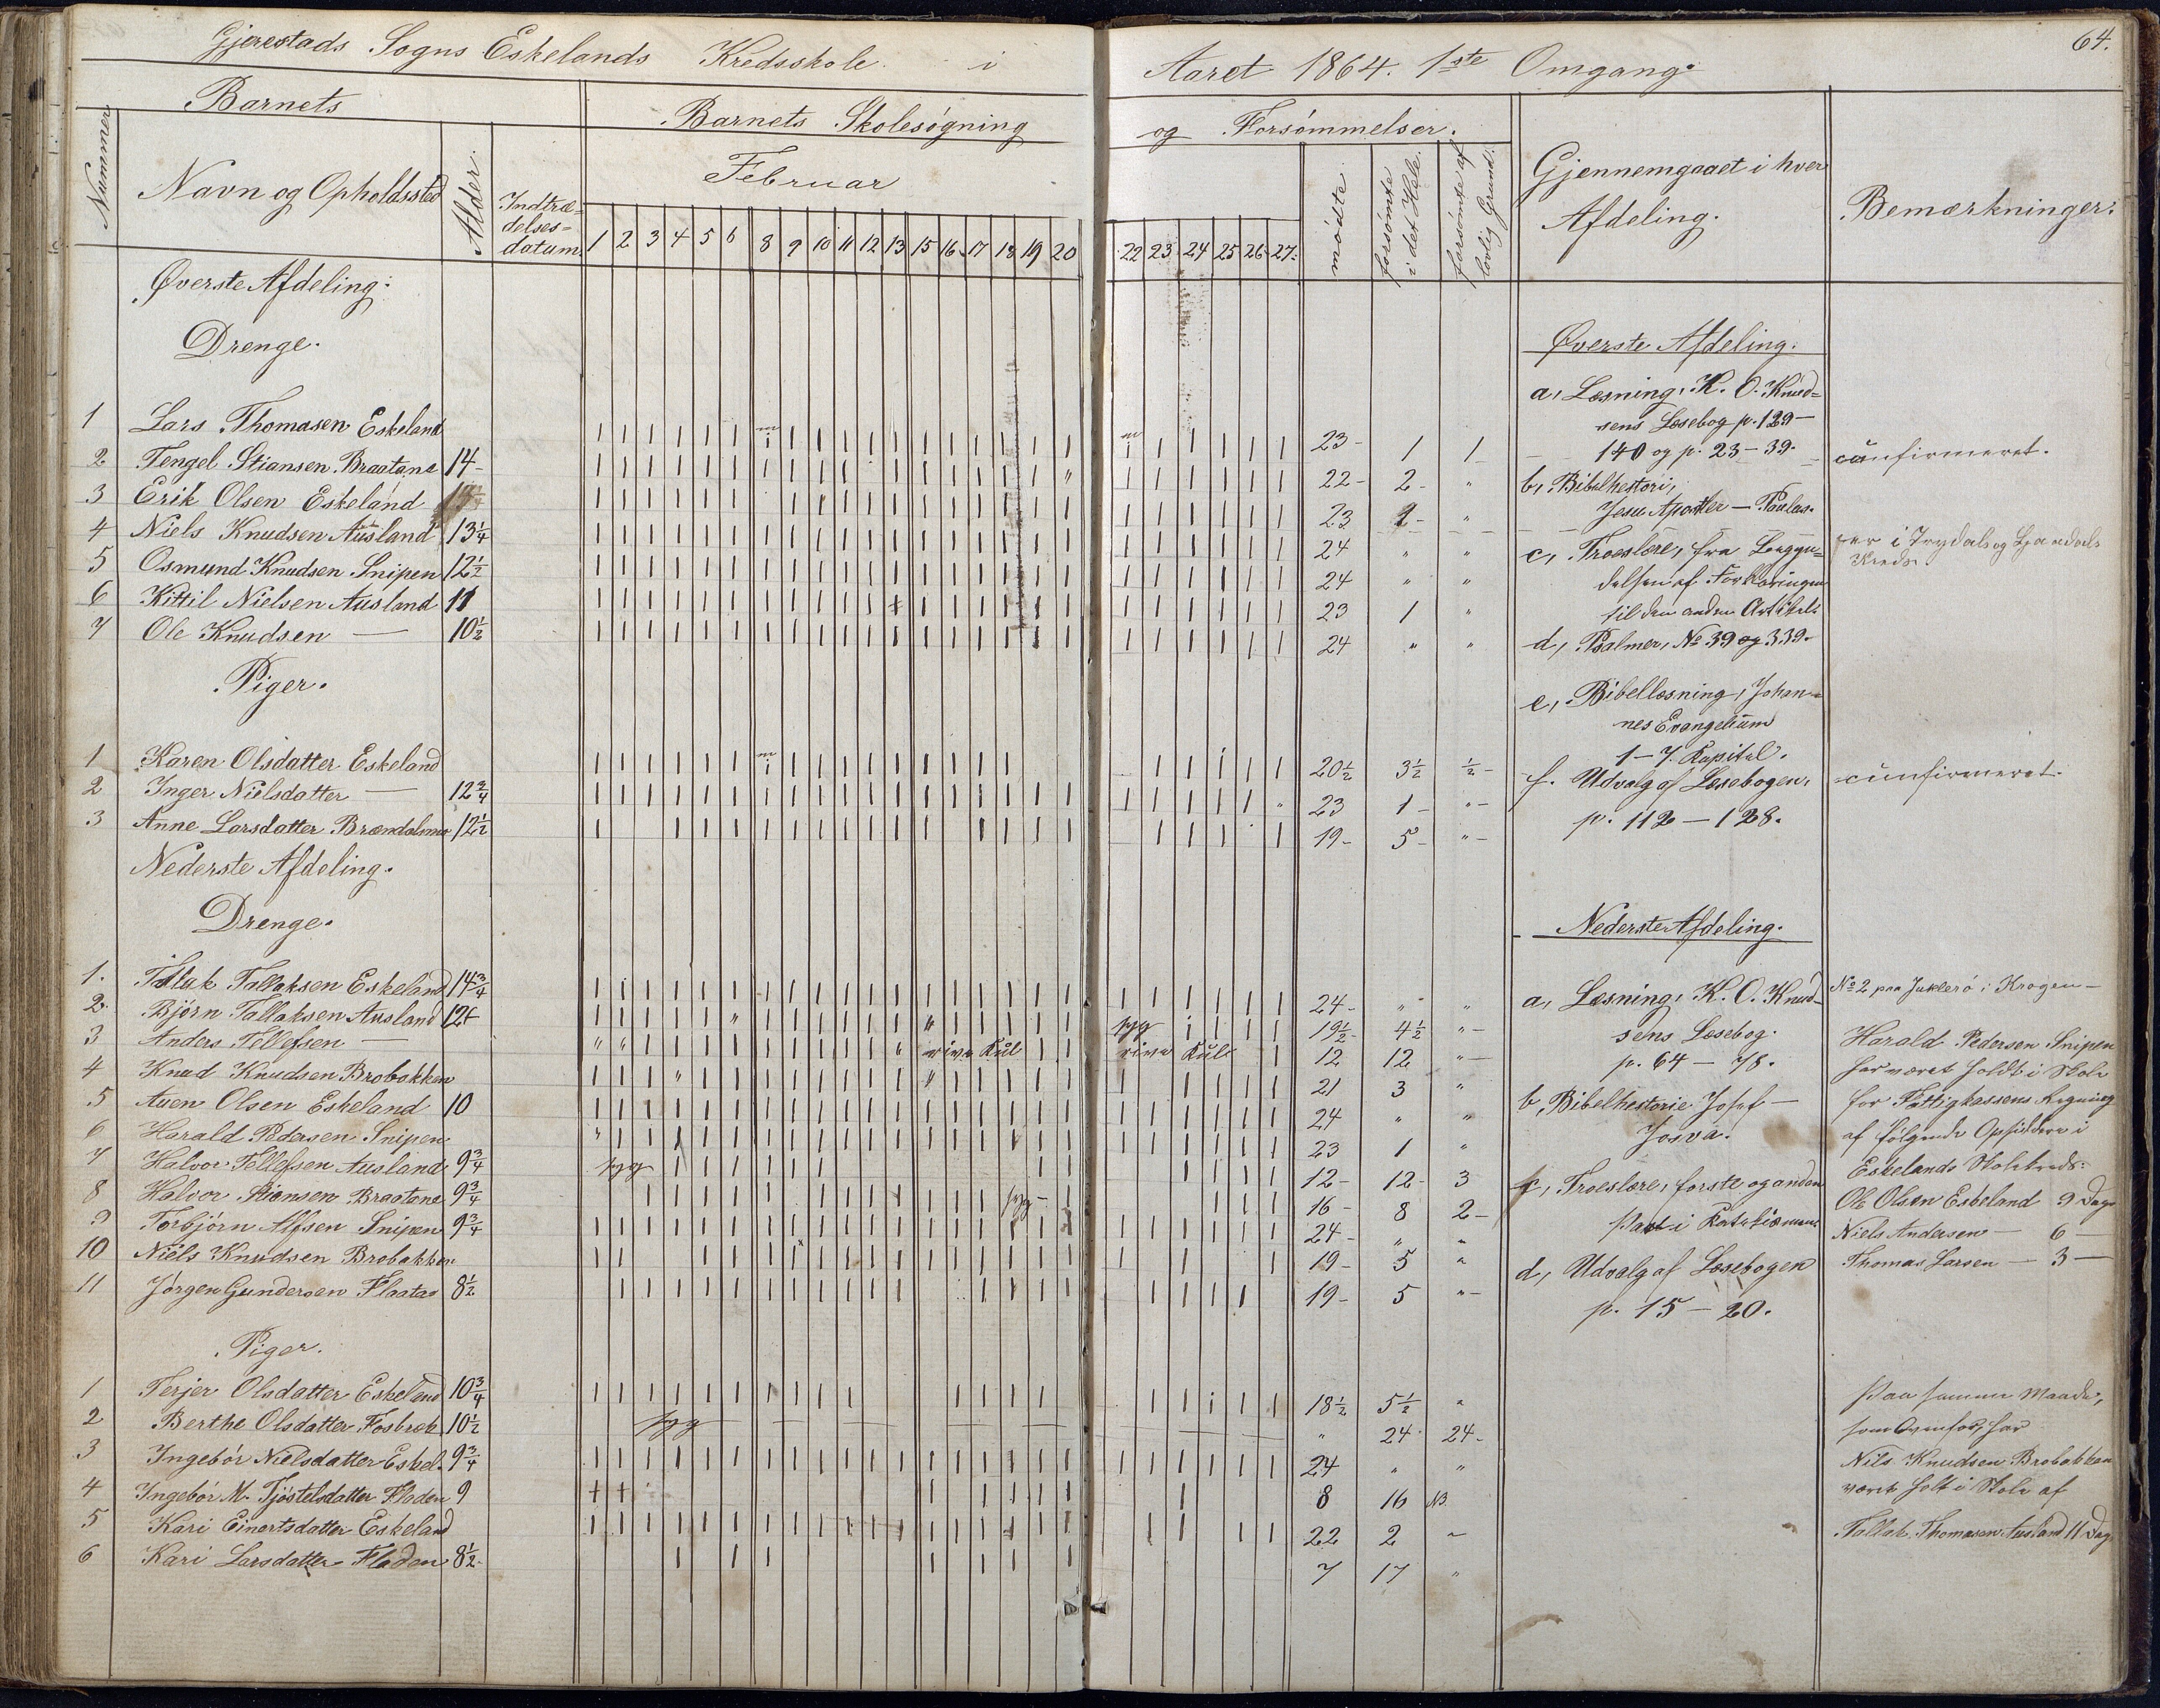 Gjerestads Sogns Eskelands Kredsskole i Aaret 1864. 1ste Omgang.
64.
Barnets
Barnets Skolesøgning og Forsømmelser.
Nummer
Navn og Opholdssted
Alder.
Indtræ-
delses-
datum.
Februar
1 2 3 4 5 6 8 9 10 11 12 13 15 16 17 18 19 20 22 23 24 25 26 27.
mødte
forsømte
i det Hele.
forsømte af
lovlig Grund.
Gjennemgaaet i hver
Afdeling.
Bemærkninger.
Øverste Afdeling.
Drenge.
1 Lars Thomasen Eskeland 23 1 1
2 Tengel Stiansen Braatane 14 22 2 "
3 Erik Olsen Eskeland 23 1 "
4 Niels Knudsen Ausland 13 1/4 24 " "
5 Osmund Knudsen Snipen 12 1/2 24 " "
6 Kittil Nielsen Ausland 11 23 1 "
7 Ole Knudsen — 10 1/2 24 " "
Piger.
1 Karen Olsdatter Eskeland 20 1/2 3 1/2 1/2
2 Inger Nielsdatter — 12 3/4 23 1 "
3 Anne Larsdatter Brændalsmo 12 1/2 19 5 "
Nederste Afdeling.
Drenge.
1. Tallak Tallaksen Eskeland 14 3/4 24 " "
2. Bjørn Tallaksen Ausland 12 syg 19 1/2 4 1/2 "
3 Anders Tellefsen — rive Kul rive Kul 12 12 "
4 Knud Knudsen Brobakken 21 3 "
5 Auen Olsen Eskeland 10 24 " "
6 Harald Pedersen Snipen 23 1 "
7 Halvor Tellefsen Ausland 9 3/4 syg 12 12 3
8 Halvor Stiansen Braatane 9 3/4 syg 16 8 2
9 Torbjørn Alfsen Snipen 9 3/4 24 " "
10 Niels Knudsen Brobakken 19 5 "
11 Jørgen Gundersen Flaatas 8 1/2 19 5 "
Piger.
1 Terjer Olsdatter Eskeland 10 3/4 18 1/2 5 1/2 "
2 Berthe Olsdatter Fosbræk 10 1/2 syg " 24 24
3 Ingebør Nielsdatter Eskel. 9 3/4 24 " "
4 Ingebør M. Tjøstelsdatter Fladen 9 8 16 NB
5 Kari Einertsdatter Eskeland 22 2 "
6 Kari Larsdatter Fladen 8 1/2 7 17 "
Øverste Afdeling.
a, Læsning, K. O. Knud-
sens Læsebog p. 129—
140 og p. 23—39.
b, Bibelhestori,
Jesu Apostler — Paulus.
c, Troeslære, fra Begyn-
delsen af Forklaringen
til den anden Artikel
d, Psalmer, No 39 og 339.
e, Bibellæsning, Johan-
nes Evangelium
1—7. Kapitel.
f. Udvalg af Læsebogen,
p. 112—128.
Nederste Afdeling.
a, Læsning, K. O. Knud-
sens Læsebog.
p. 64—78.
b, Bibelhestorie Josef—
Josva.
c, Troeslære, første og anden
Part i Katekismus
d, Udvalg af Læsebogen
p. 15—20.
cunfirmeret.
er i Trydals og
Kreds
cunfirmeret.
No 2 paa i Krogen
Harald Pedersen Snipen
har været holdt i Skole
for Fattigkassens Regning
af følgende Opsiddere i
Eskelands Skolekreds:
Ole Olsen Eskeland 9 Dage
Niels Andersen — 6 —
Thomas Larsen — 3 —
Paa samme Maade,
som ovenfor, har
Nils Knudsen Brobakken
været holt i Skole af
Tallak Thomasen Ausland 11 Dage